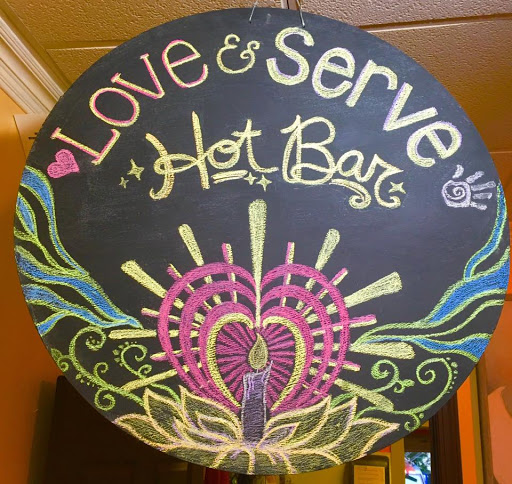 Love & Serve
Hot Bar